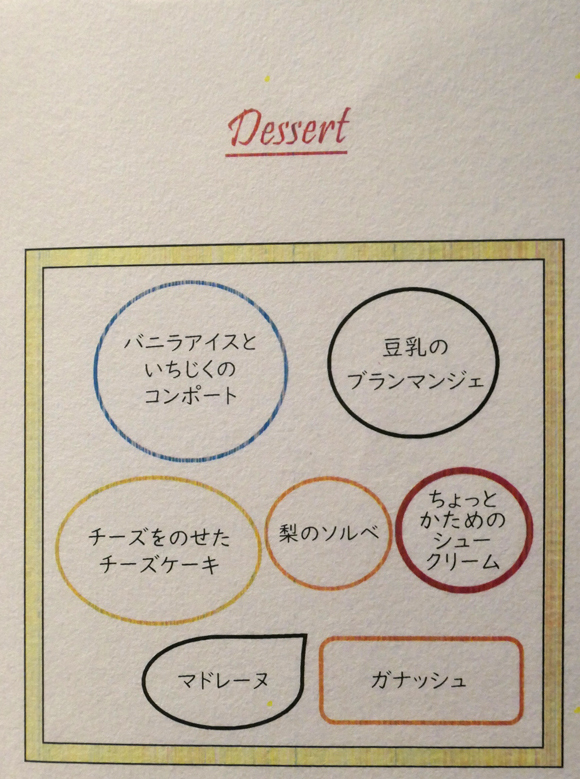 Dessert
バニラアイスと
いちじくの
コンポート
豆乳の
ブランマンジェ
チーズをのせた
チーズケーキ
梨のソルベ
ちょっと
かための
シュー
クリーム
マドレーヌ
ガナッシュ